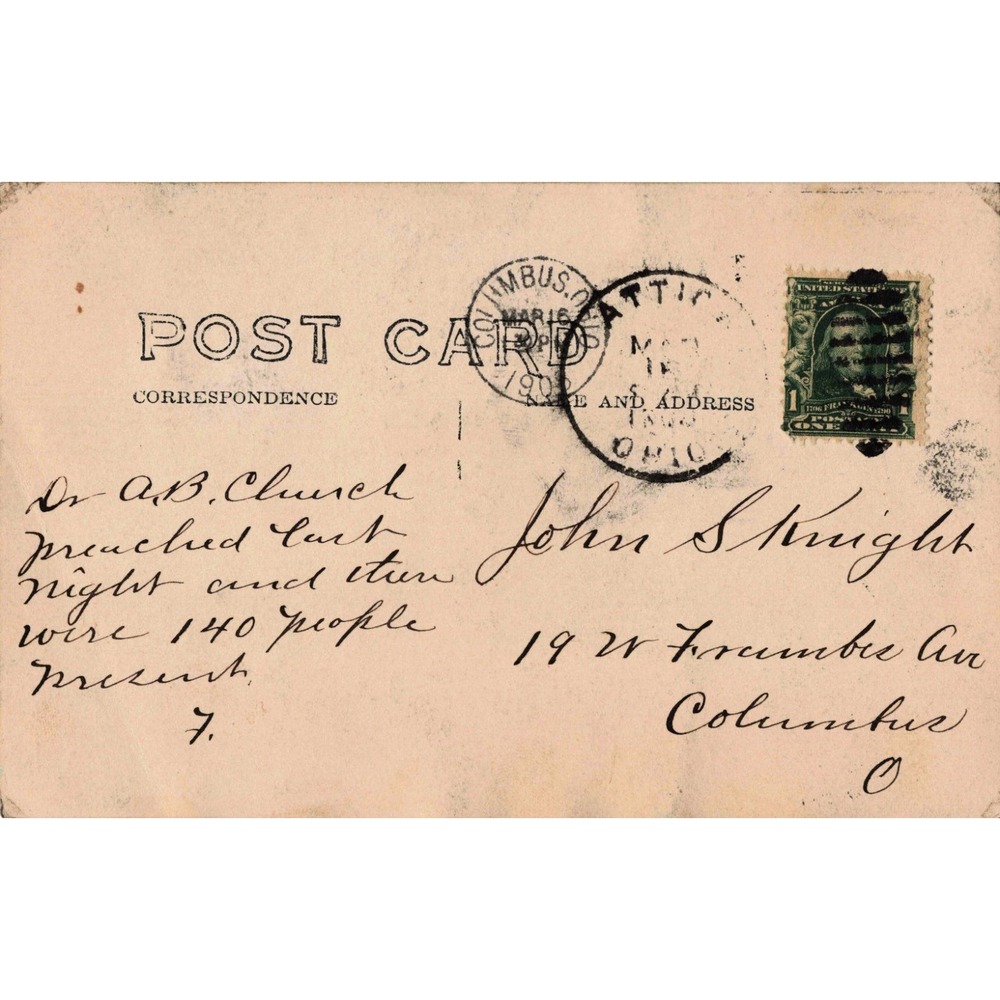 POST CARD
CORRESPONDENCE
NAME AND ADDRESS
COLUMBUS, OHIO
MAR 16
ATTIC
OHIO
UNITED STATES
1 1
1706 FRANKLIN 1790
POSTAGE
ONE CENT
Dr A.B. Church
preached last
night and there
were 140 people
present.
F.
John S Knight
19 W Frambes Ave
Columbus
O